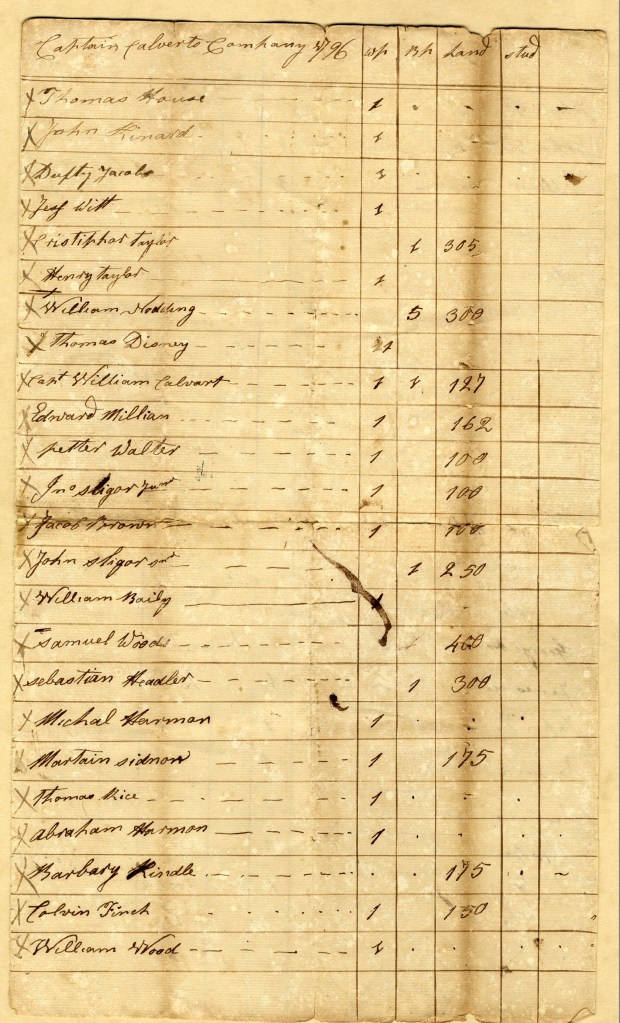 Captain Calverts Company 1796 wp Bp Land stud
X Thomas House 1
X John Kinard 1
X Dufty Jacobs 1
X Jess Witt 1
X Cristiphor taylor 1 305
X Henry taylor 1
X William Nodding 5 300
X Thomas Disney 1
X Capt William Calvart 1 1 127
X Edward Millian 1 162
X petter Walter 1 100
X Jno sligor Junr 1 100
X Jacob Brown 1 100
X John sligor snr 1 250
X William Baily 1
X Samuel Woods 400
X sebastian Headler 1 300
X Michal Harmon 1
X Martain sidnor 1 175
X thomas Rice 1
X abraham Harmon 1
X Barbary Kindle 175
X Colvin Finch 1 150
X William Wood 1